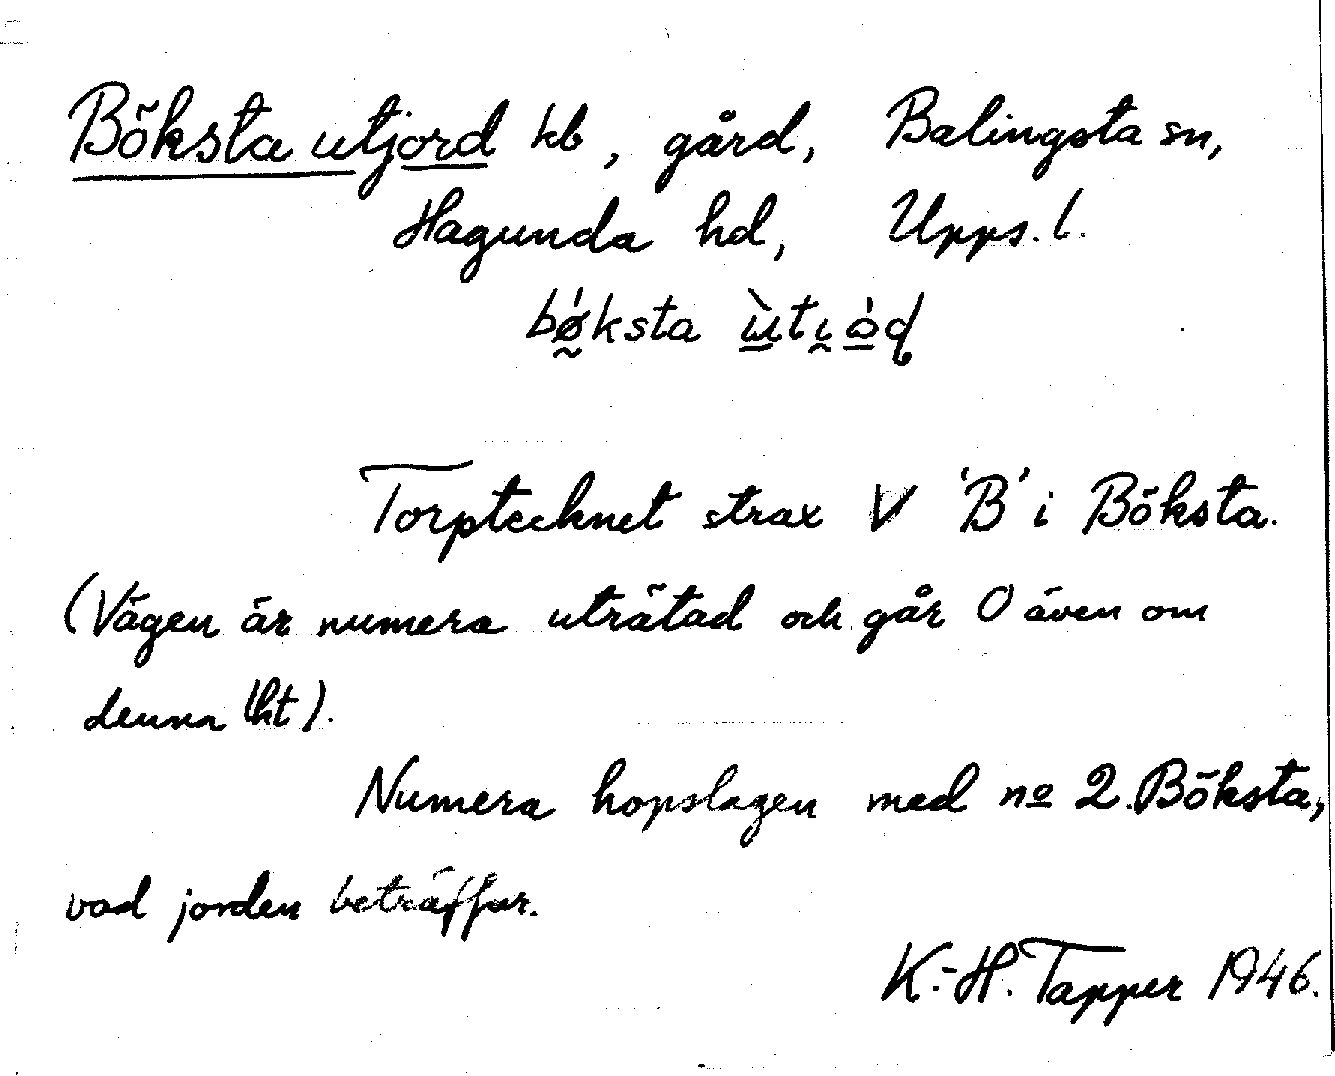 Böksta utjord kb, gård, Balingsta sn,
Hagunda hd, Upps. l.
bǿ̰ksta ù̱tɩ̰ò̱ɖ
Torptecknet strax V 'B' i Böksta.
(Vägen är numera uträtad och går O även om
denna lht).
Numera hopslagen med nº 2 Böksta,
vad jorden beträffar.
K.-H. Tapper 1946.